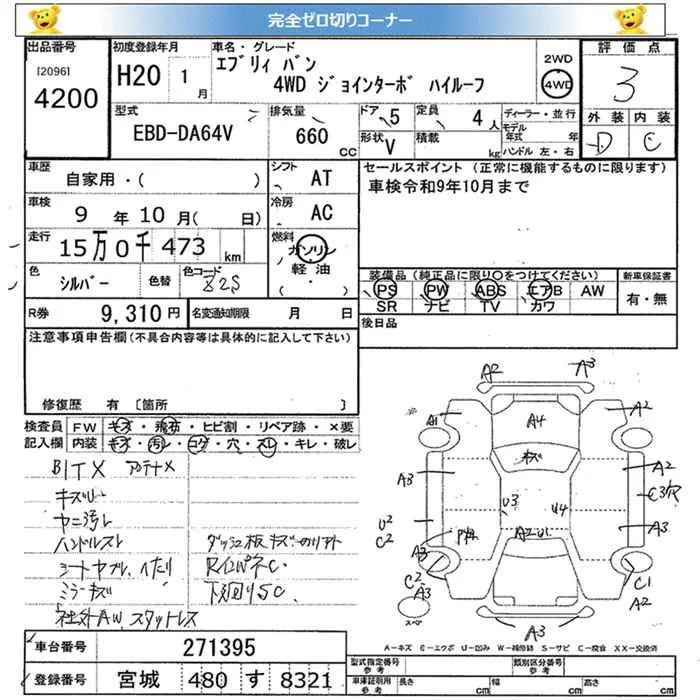 完全ゼロ切りコーナー
出品番号 [2096] 4200
初度登録年月 H20 1月
車名・グレード エブリィ バン 4WD ジョインターボ ハイルーフ
2WD 4WD
評価点 3
外装 D 内装 C
型式 EBD-DA64V
排気量 660 CC
ドア 5
形状 V
定員 4人
積載 kg
ディーラー・並行
モデル年式 年
ハンドル 左・右
車歴 自家用・( )
シフト AT
セールスポイント (正常に機能するものに限ります)
車検令和9年10月まで
車検 9年10月( 日)
冷房 AC
走行 15万0千473km
燃料 ガソリン 軽油 ( ・ )
色 シルバー 色替 色コード Z2S
装備品(純正品に限り○をつけてください)
PS PW ABS エアB AW
SR ナビ TV カワ
新車保証書 有・無
R券 9,310円 名変通知期限 月 日
後日品
注意事項申告欄(不具合内容等は具体的に記入して下さい)
修復歴 有 [箇所 ]
検査員記入欄
FW キズ・飛石・ヒビ割・リペア跡・×要
内装 キズ・汚レ・コゲ・穴・スレ・キレ・破レ
BITX アンテナX
ヤニ汚レ
ハンドルスレ
シートヤブレ、ヘタリ
ミラーキズ
社外AW スタットレス
RインパネC
下廻り5C
A2 A3
A1 A4 A2
キズ
A3 A2
C3穴
U3 U4
U2 C2 A2U1 A3
A3
C2 A3 C1 A2
スペア
A3
A-キズ E-エクボ U-凹み W-補修跡 S-サビ C-腐食 XX-交換済
車台番号 271395
登録番号 宮城 480 す 8321
型式指定番号 参考
類別区分番号 参考
車庫証明用 参考 長さ cm 幅 cm 高さ cm